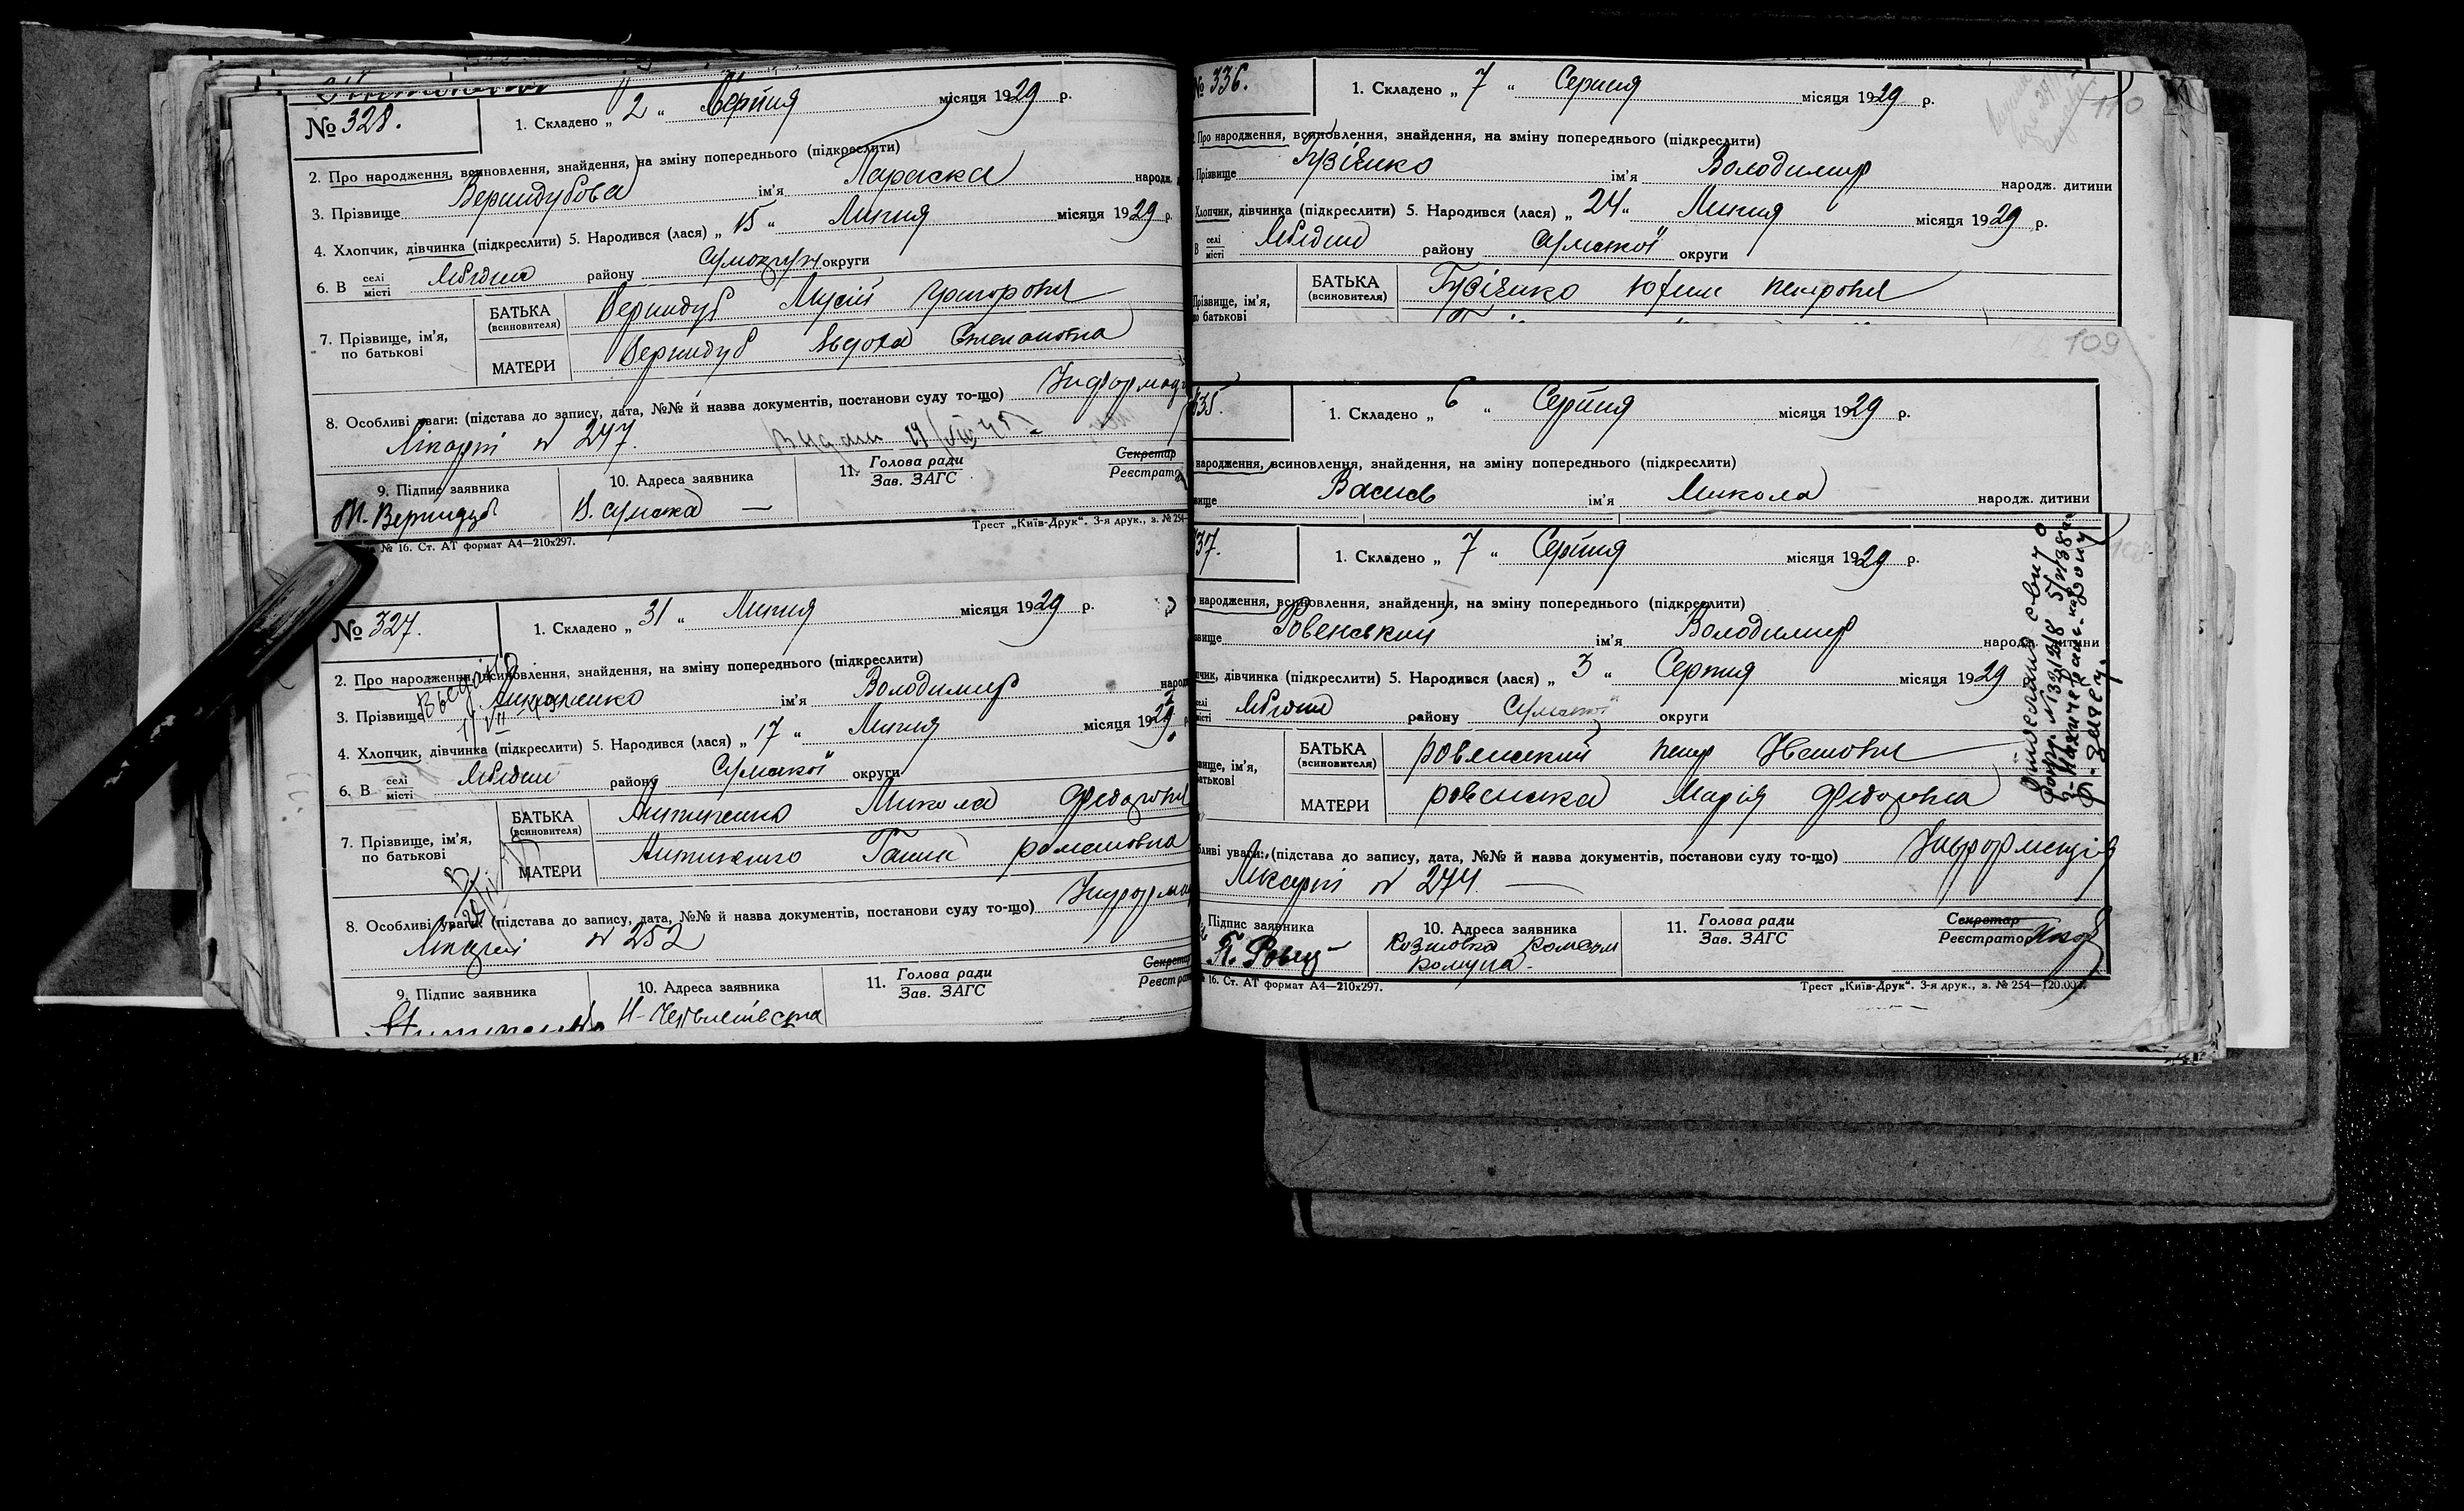 № 328.
1. Складено „ 2 “ Серпня місяця 1929 р.
2. Про народження, всиновлення, знайдення, на зміну попереднього (підкреслити)
3. Прізвище Вернидубова ім'я Параска народж.
4. Хлопчик, дівчинка (підкреслити) 5. Народився (лася) „ 15 “ Липня місяця 1929 р.
6. В селі/місті Лебедині району Сумокруж округи
7. Прізвище, ім'я, по батькові
БАТЬКА (всиновителя) Вернидуб Мусій Григорович
МАТЕРИ Вернидуб Явдоха Степановна
8. Особливі уваги: (підстава до запису, дата, №№ й назва документів, постанови суду то-що) Информаці
Лікарні № 247.
9. Підпис заявника
10. Адреса заявника
11. Голова ради
Зав. ЗАГС
Секретар
Реєстратор
М. Вернидуб
В. Сумска —
№ 16. Ст. АТ формат А4—210х297.
Трест „Київ-Друк“. 3-я друк., з. № 254—
№ 327.
1. Складено „ 31 “ Липня місяця 1929 р.
2. Про народження, всиновлення, знайдення, на зміну попереднього (підкреслити)
3. Прізвище ім'я Володимир народ
4. Хлопчик, дівчинка (підкреслити) 5. Народився (лася) „ 17 “ Липня місяця 1929 р.
6. В селі/місті Лебедині району Сумської округи
7. Прізвище, ім'я, по батькові
БАТЬКА (всиновителя) Микола Федорович
МАТЕРИ Ганна Романовна
8. Особливі уваги: (підстава до запису, дата, №№ й назва документів, постанови суду то-що) Информа
Лікарні № 252
9. Підпис заявника
10. Адреса заявника
11. Голова ради
Зав. ЗАГС
Секретар
Реєстра
№ 336.
1. Складено „ 7 “ Серпня місяця 1929 р.
110
2 Про народження, всиновлення, знайдення, на зміну попереднього (підкреслити)
Прізвище Гузієнко ім'я Володимир народж. дитини
Хлопчик, дівчинка (підкреслити) 5. Народився (лася) „ 24 “ Липня місяця 1929 р.
В селі/місті Лебедині району Сумської округи
Прізвище, ім'я, по батькові
БАТЬКА (всиновителя) Гузієнко Юхим Петрович
109
335.
1. Складено „ 6 “ Серпня місяця 1929 р.
народження, всиновлення, знайдення, на зміну попереднього (підкреслити)
вище Васис ім'я Микола народж. дитини
37.
1. Складено „ 7 “ Серпня місяця 1929 р.
народження, всиновлення, знайдення, на зміну попереднього (підкреслити)
вище Ровенський ім'я Володимир народж. дитини
пчик, дівчинка (підкреслити) 5. Народився (лася) „ 3 “ Серпня місяця 1929
селі/місті Лебедині району Сумської округи
вище, ім'я, батькові
БАТЬКА (всиновителя) Ровенський Петр Иванович
МАТЕРИ Ровенська Марія Федоровна
бливі уваги: (підстава до запису, дата, №№ й назва документів, постанови суду то-що) Информация
Лікарні № 274. —
Підпис заявника
10. Адреса заявника
11. Голова ради
Зав. ЗАГС
Секретар
Реєстратор
комуна.
16. Ст. АТ формат А4—210х297.
Трест „Київ-Друк“. 3-я друк., з. № 254—120.000.